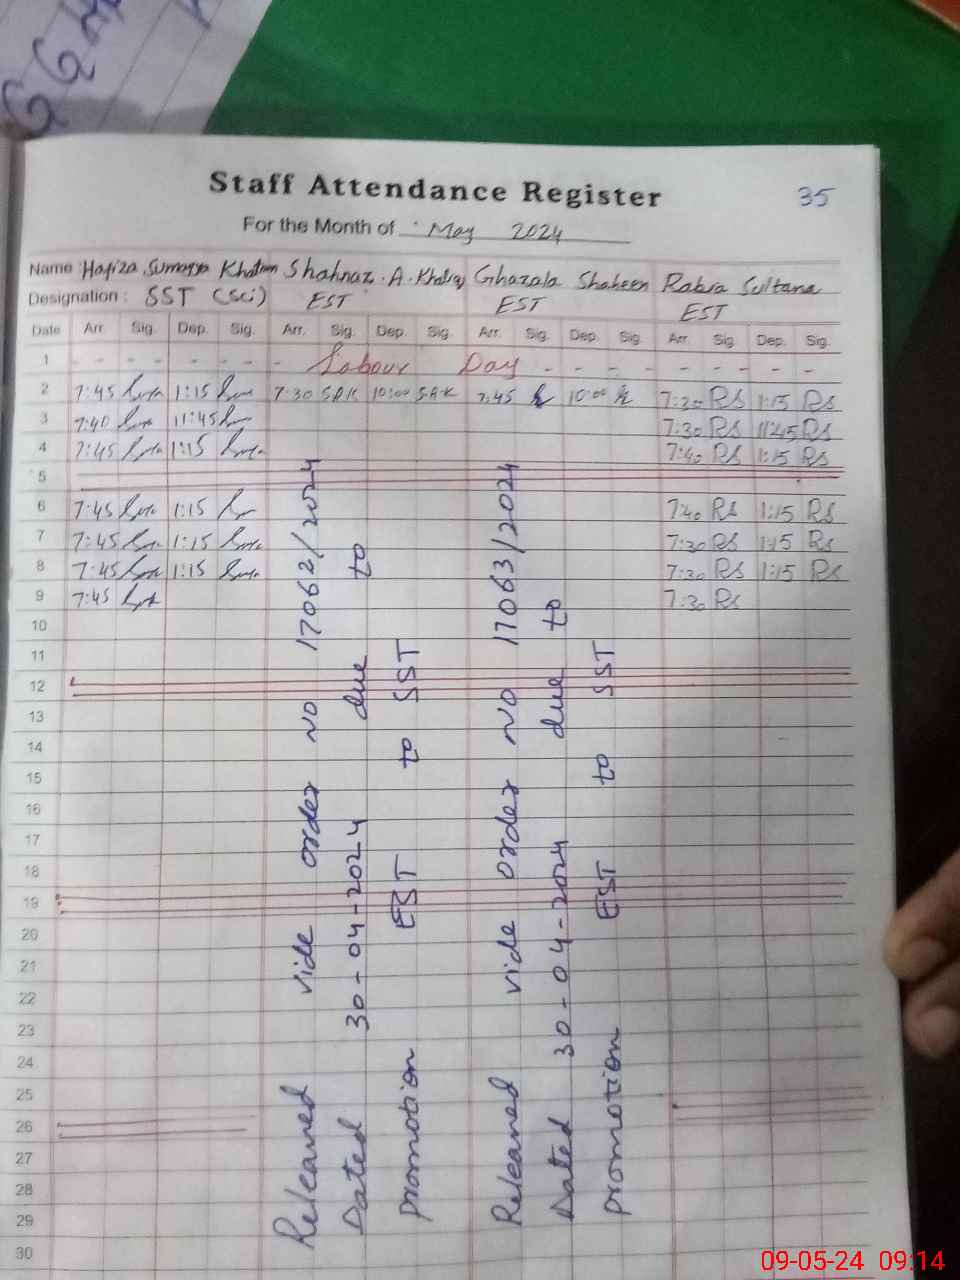 GGH
Staff Attendance Register
35
For the Month of May 2024
Name : Hafiza Sumayya Khatoon Shahnaz . A . Khaliq Ghazala Shaheen Rabia Sultana
Designation : SST (Sci) EST EST EST
Date Arr. Sig. Dep. Sig. Arr. Sig. Dep. Sig. Arr. Sig. Dep. Sig. Arr. Sig. Dep. Sig.
1 - - - - - - Labour Day - - - - - -
2 7:45 1:15 7:30 S.A.K 10:00 S.A.K 7:45 10:00 7:30 RS 1:15 RS
3 7:40 11:45 7:30 RS 11:45 RS
4 7:45 1:15 7:40 RS 1:15 RS
5
6 7:45 1:15 7:40 RS 1:15 RS
7 7:45 1:15 7:30 RS 1:15 RS
8 7:45 1:15 7:30 RS 1:15 RS
9 7:45 7:30 RS
10
11
12
13
14
15
16
17
18
19
20
21
22
23
24
25
26
27
28
29
30
Releaned vide order no 17062/2024
Dated 30-04-2024 due to
promotion EST to SST
Releaned vide order no 17063/2024
Dated 30-04-2024 due to
promotion EST to SST
09-05-24 09:14